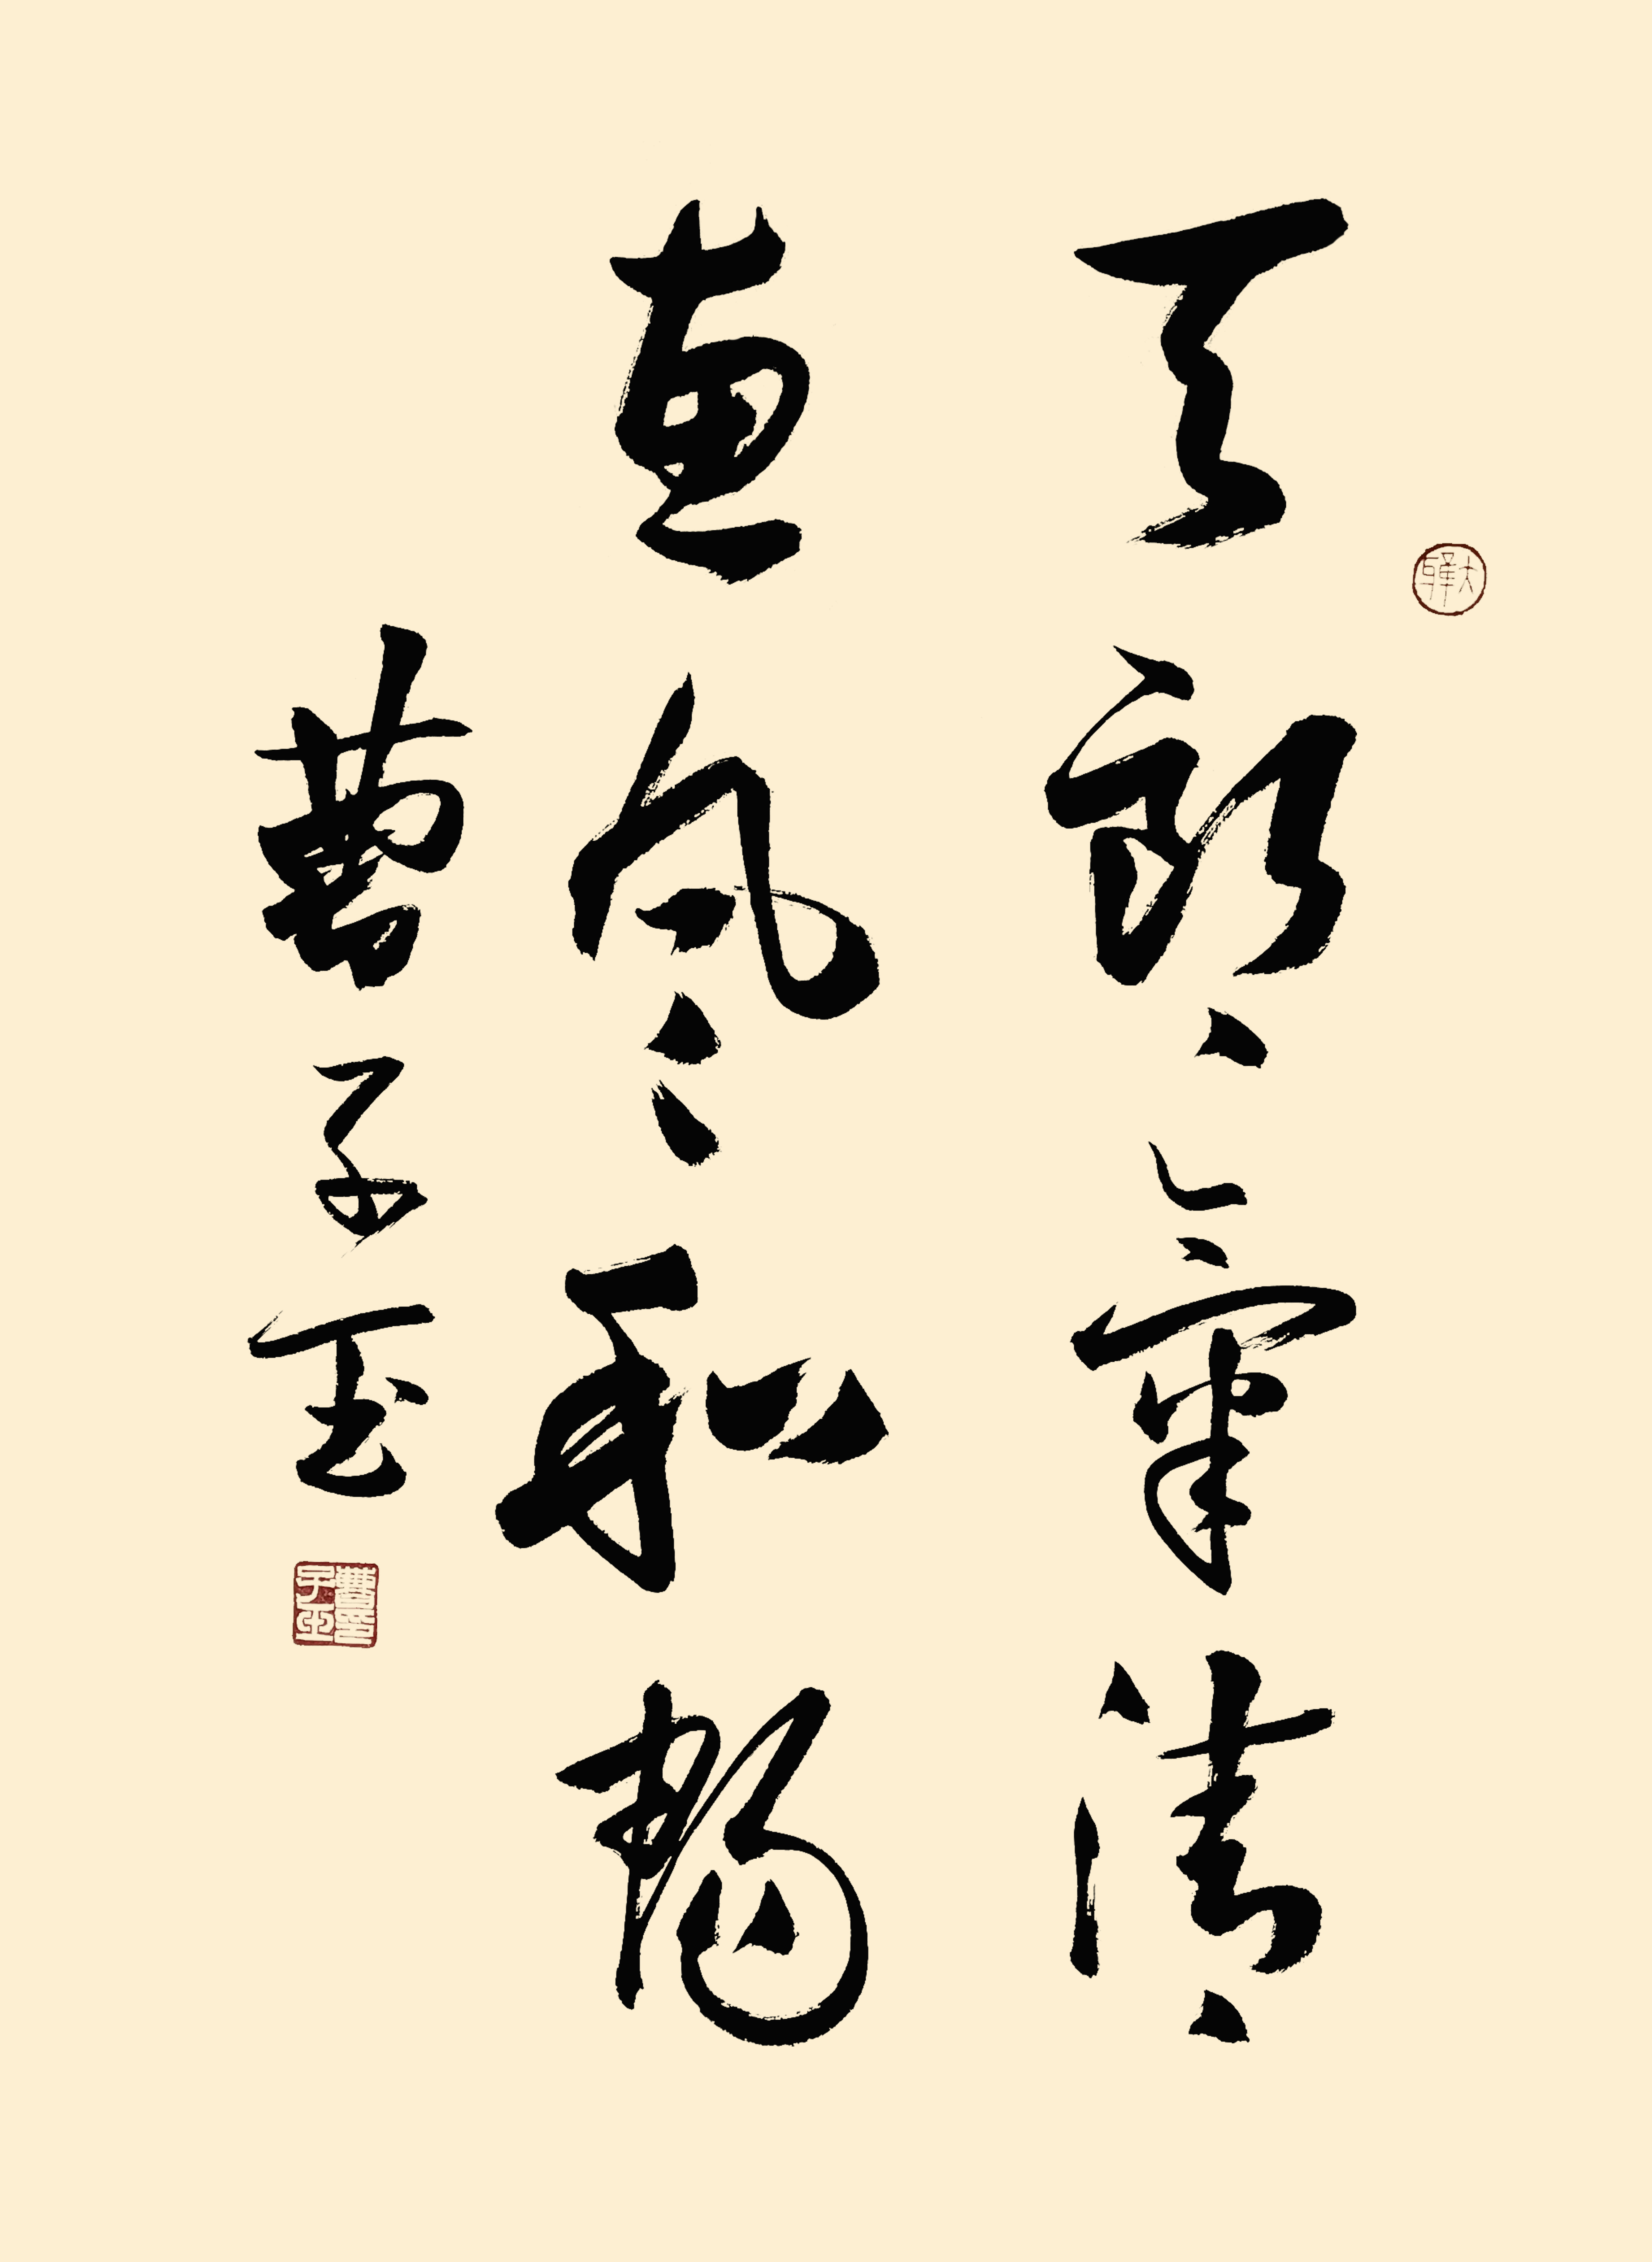 天朗氣清
惠風和暢
曹子玉
曹印子玉